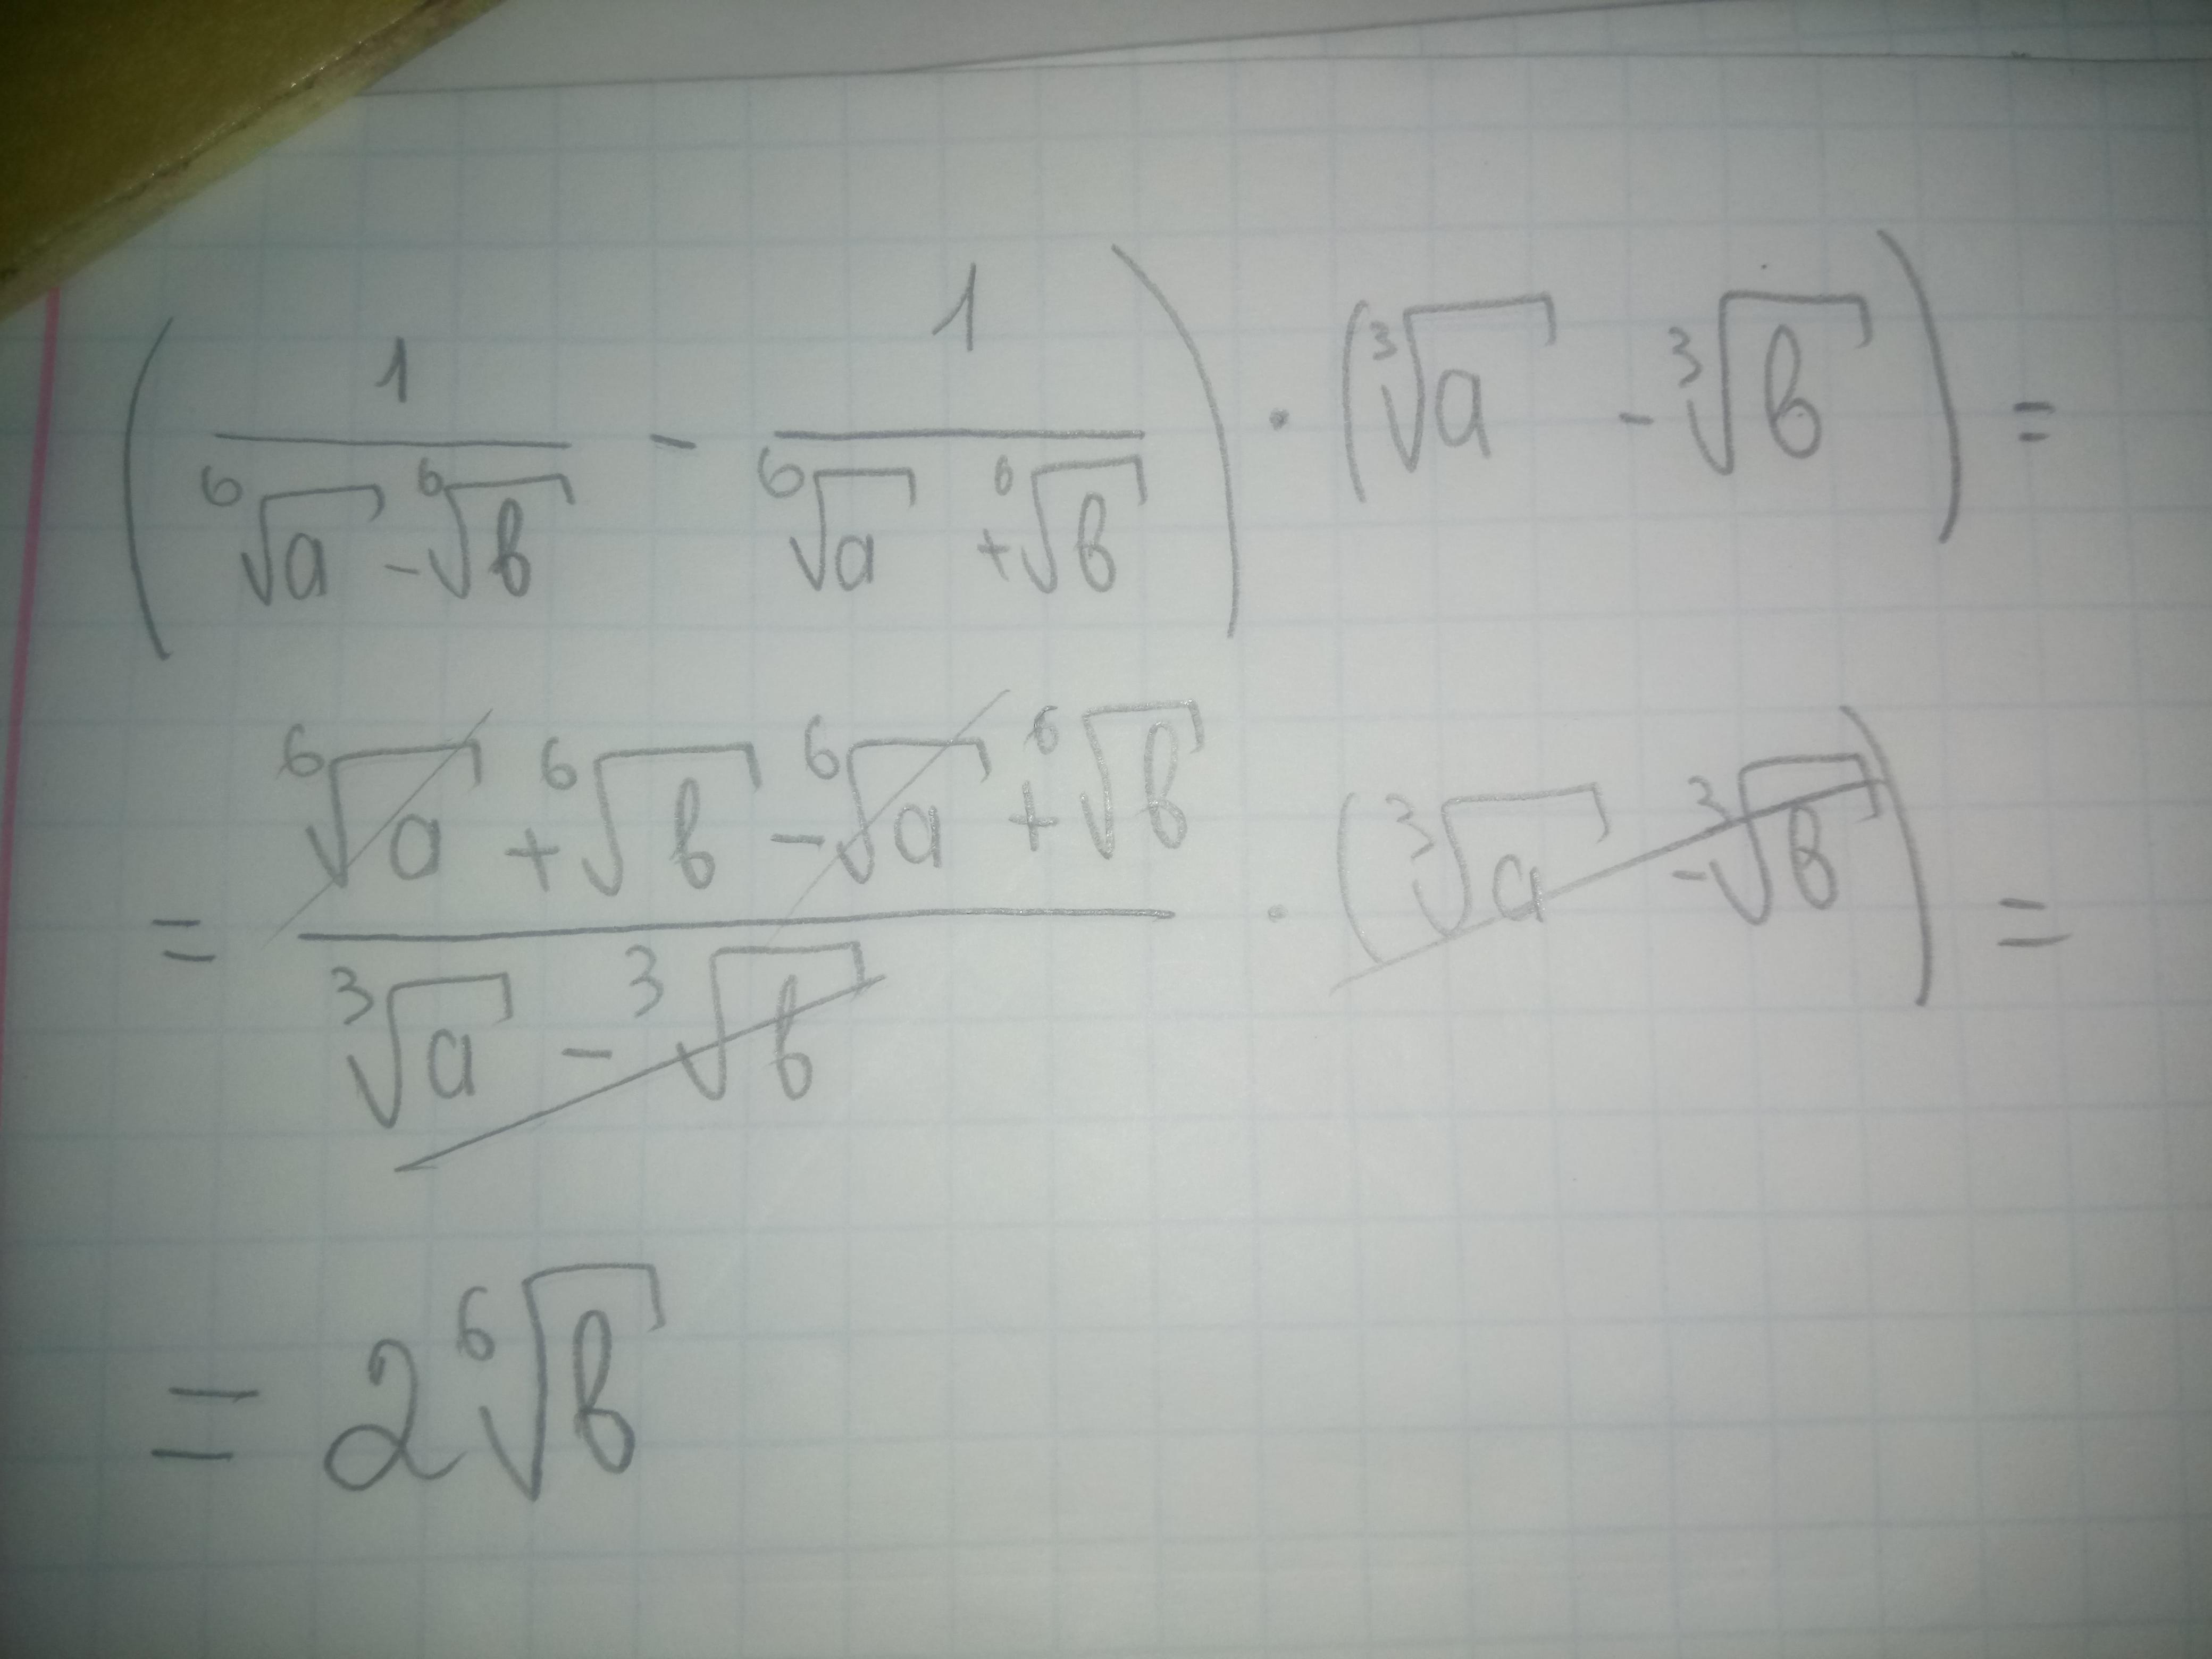 (1/(⁶√a - ⁶√b) - 1/(⁶√a + ⁶√b)) · (³√a - ³√b) =
= (⁶√a + ⁶√b - ⁶√a + ⁶√b)/(³√a - ³√b) · (³√a - ³√b) =
= 2⁶√b